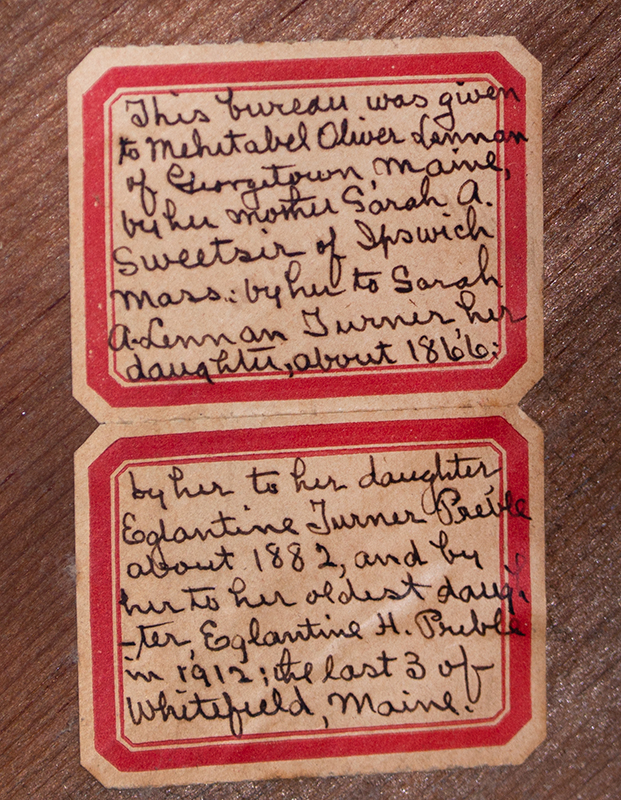 This bureau was given
to Mehitabel Oliver Lennan
of Georgetown, Maine,
by her mother Sarah A.
Sweetsir of Ipswich
Mass.: by her to Sarah
A. Lennan Turner, her
daughter, about 1866:
by her to her daughter
Eglantine Turner Preble
about 1882, and by
her to her oldest daugh-
-ter, Eglantine H. Preble
in 1912; the last 3 of
Whitefield, Maine.